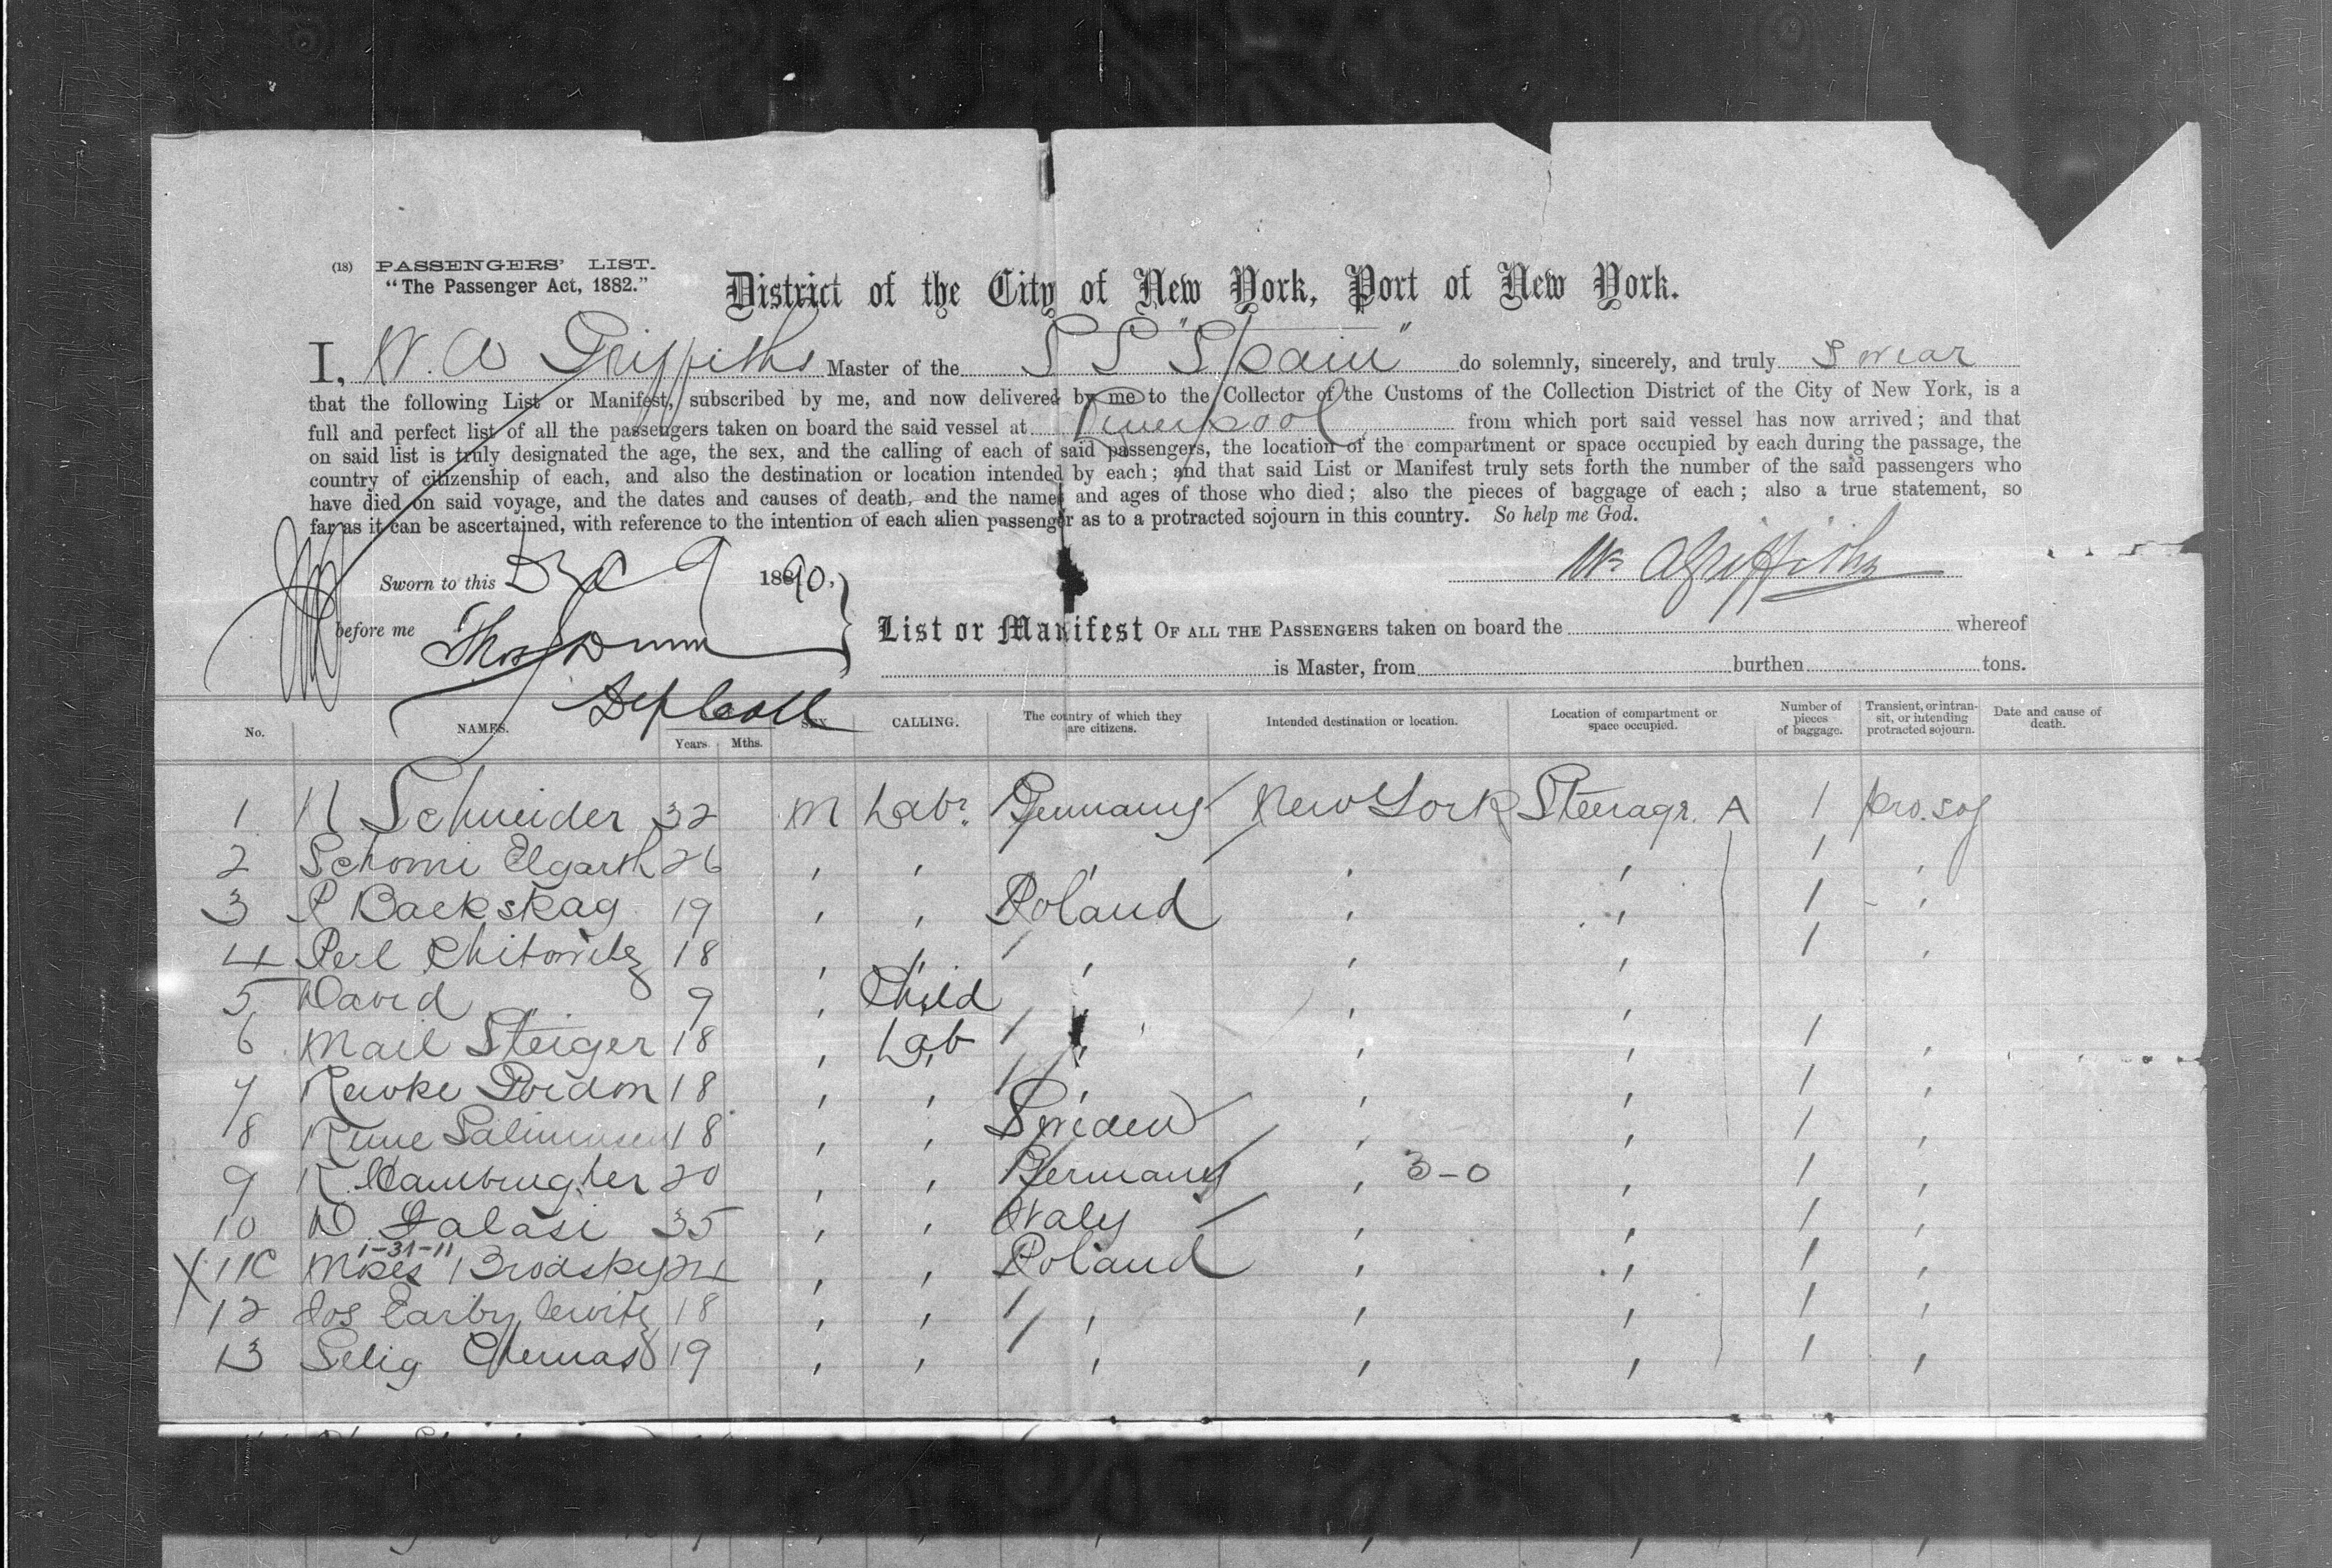 (18) PASSENGERS' LIST.
"The Passenger Act, 1882."
District of the City of New York, Port of New York.
I, W. A Griffiths Master of the S S "Spain" do solemnly, sincerely, and truly Swear
that the following List or Manifest, subscribed by me, and now delivered by me to the Collector of the Customs of the Collection District of the City of New York, is a
full and perfect list of all the passengers taken on board the said vessel at Liverpool from which port said vessel has now arrived; and that
on said list is truly designated the age, the sex, and the calling of each of said passengers, the location of the compartment or space occupied by each during the passage, the
country of citizenship of each, and also the destination or location intended by each; and that said List or Manifest truly sets forth the number of the said passengers who
have died on said voyage, and the dates and causes of death, and the names and ages of those who died; also the pieces of baggage of each; also a true statement, so
far as it can be ascertained, with reference to the intention of each alien passenger as to a protracted sojourn in this country. So help me God.
Sworn to this Dec 9 1890, W A Griffiths
before me Thos Dunn
Dep Coll
List or Manifest OF ALL THE PASSENGERS taken on board the whereof
is Master, from burthen tons.
No. NAMES. Years. Mths. SEX CALLING. The country of which they are citizens. Intended destination or location. Location of compartment or space occupied. Number of pieces of baggage. Transient, or in transit, or intending protracted sojourn. Date and cause of death.
1 N Schneider 32 M Labr. Germany New York Steerage. A 1 pro. soj
2 Schomi Elgarth 26 , , ' , ' 1 ,
3 P Backskag 19 , , Poland , , 1 ,
4 Perl Chitowitz 18 , , , , , 1 ,
5 David 9 , Child , , ,
6 Mail Steiger 18 , Lab , , , 1 ,
7 Rewke Poidon 18 , , , , , 1 ,
8 Rune 18 , , Sweden , , 1 ,
9 K. Hambrugher 20 , , Germany , 3-0 , 1 ,
10 D 35 , , Italy , , 1 ,
1-31-11
X 11C Moses Brodsky 24 , , Poland , , 1 ,
12 Jos 18 , , , , , 1 ,
13 Selig 19 , , , , , 1 ,